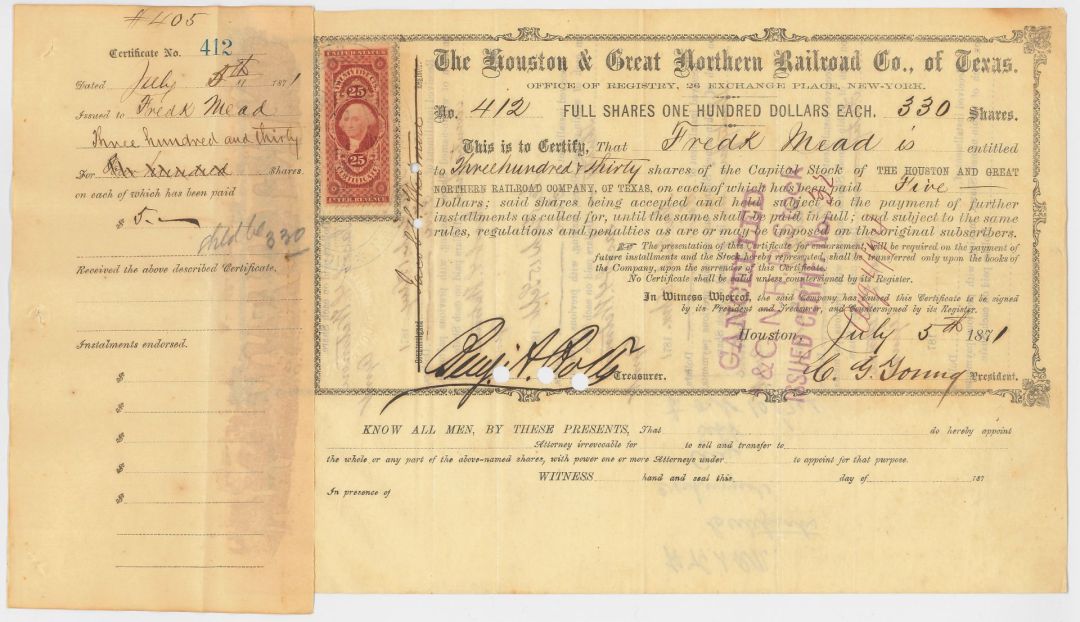 #405
Certificate No. 412
Dated July 5th 1871
Issued to Fredk Mead
Three hundred and thirty
For Shares
on each of which has been paid
$ 5
shld be 330
Received the above described Certificate.
Instalments endorsed.
$
$
$
$
$
UNITED STATES
25 25
CERTIFICATE
INTER. REVENUE
The Houston & Great Northern Railroad Co., of Texas.
OFFICE OF REGISTRY, 26 EXCHANGE PLACE, NEW-YORK.
No. 412 FULL SHARES ONE HUNDRED DOLLARS EACH. 330 Shares.
This is to Certify, That Fredk Mead is entitled
to Three hundred & thirty shares of the Capital Stock of THE HOUSTON AND GREAT
NORTHERN RAILROAD COMPANY, OF TEXAS, on each of which has been paid Five
Dollars; said shares being accepted and held subject to the payment of further
installments as called for, until the same shall be paid in full; and subject to the same
rules, regulations and penalties as are or may be imposed on the original subscribers.
The presentation of this Certificate for endorsement, will be required on the payment of
future installments and the Stock hereby represented, shall be transferred only upon the books of
the Company, upon the surrender of this Certificate.
No Certificate shall be valid unless countersigned by its Register.
In Witness Whereof, the said Company has caused this Certificate to be signed
by its President and Treasurer, and Countersigned by its Register.
Houston July 5th 1871
Treasurer. C. G. Young President.
CANCELLED
& G. N. STOCK
ISSUED CERT. NO.
KNOW ALL MEN, BY THESE PRESENTS, That do hereby appoint
Attorney irrevocable for to sell and transfer to
the whole or any part of the above-named shares, with power one or more Attorneys under to appoint for that purpose.
WITNESS hand and seal this day of 187
In presence of